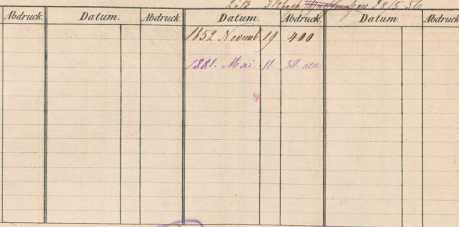 Abdruck. Datum. Abdruck. Datum. Abdruck. Datum. Abdruck.
1852 Novemb 19 400
1881. Mai 11